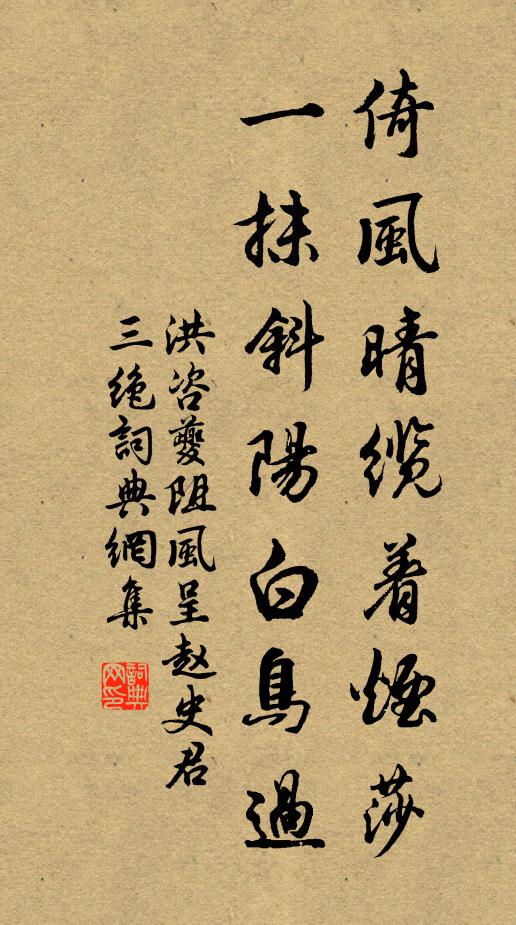 倚風晴纜着煙莎
一抹斜陽白鳥過
洪咨夔阻風呈赵史君
三絶詞典網集
詞典网印